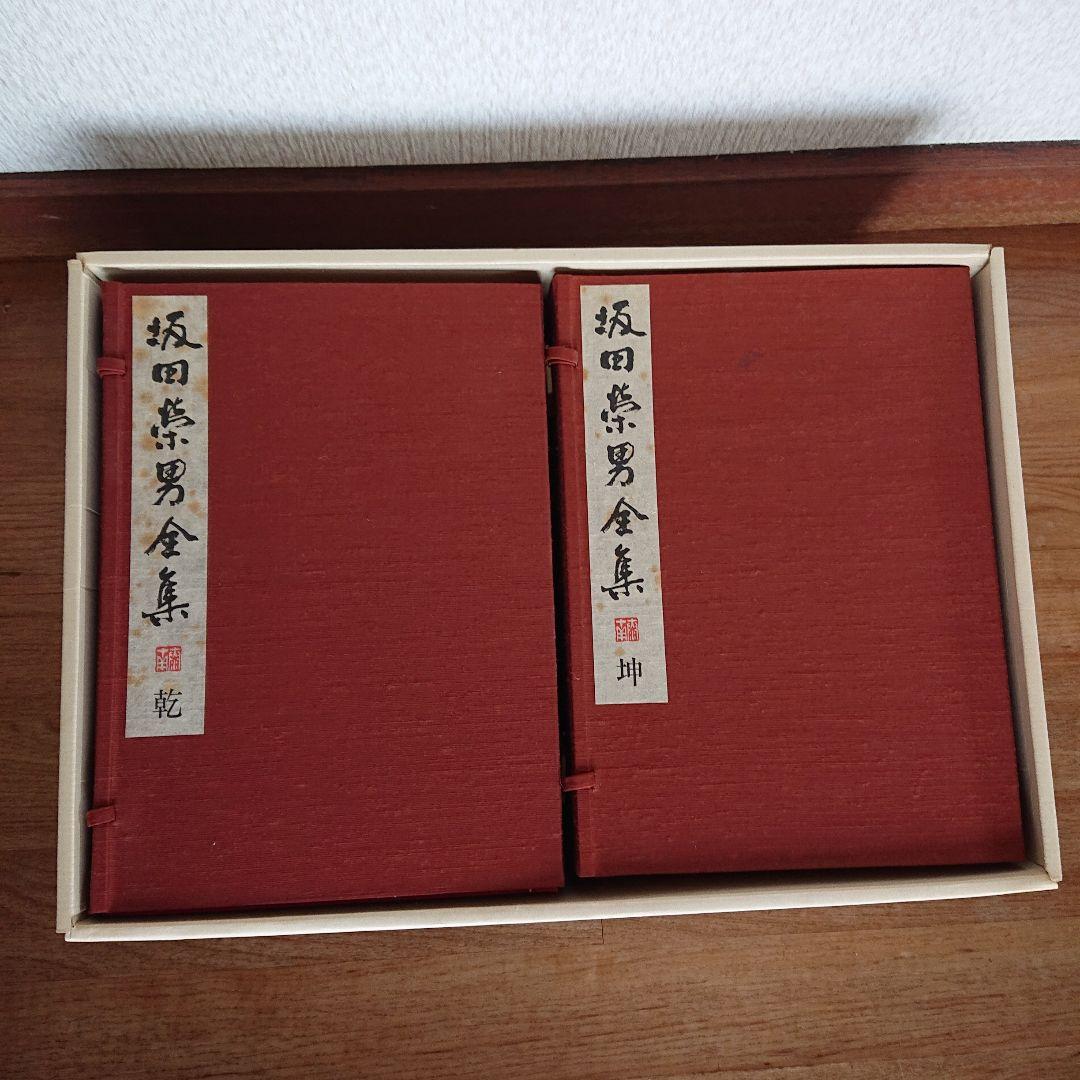 坂田榮男全集
乾
坂田榮男全集
坤